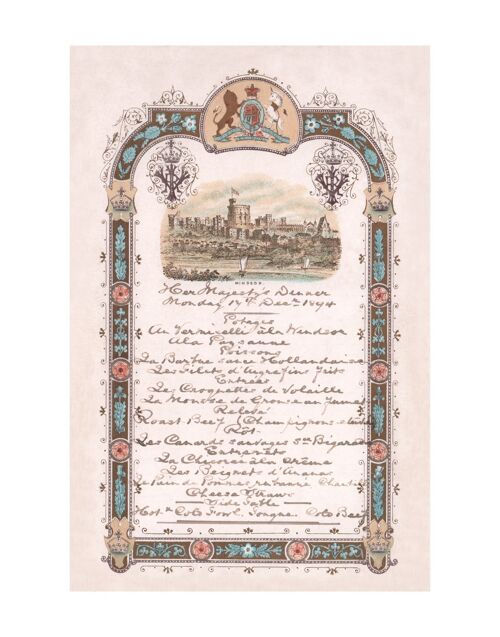 WINDSOR
Her Majesty's Dinner
Monday 17th Decr 1894
Potages
Au Vermicelle à la Windsor
A la Paysanne
Poissons
La Barbue sauce Hollandaise
Les Filets d'Aigrefin frits
Entrées
Les Croquettes de Volaille
La Mousse de Grouse au fumet
Relevé
Roast Beef Champignons
Rôt
Les Canards sauvages sce Bigarade
Entremêts
La Chicorée à la Crème
Les Beignets d'Ananas
Le Pain de Pommes rubanné
Cheese Straws
Side Table
Hot & Cold Fowl. Tongue. Cold Beef